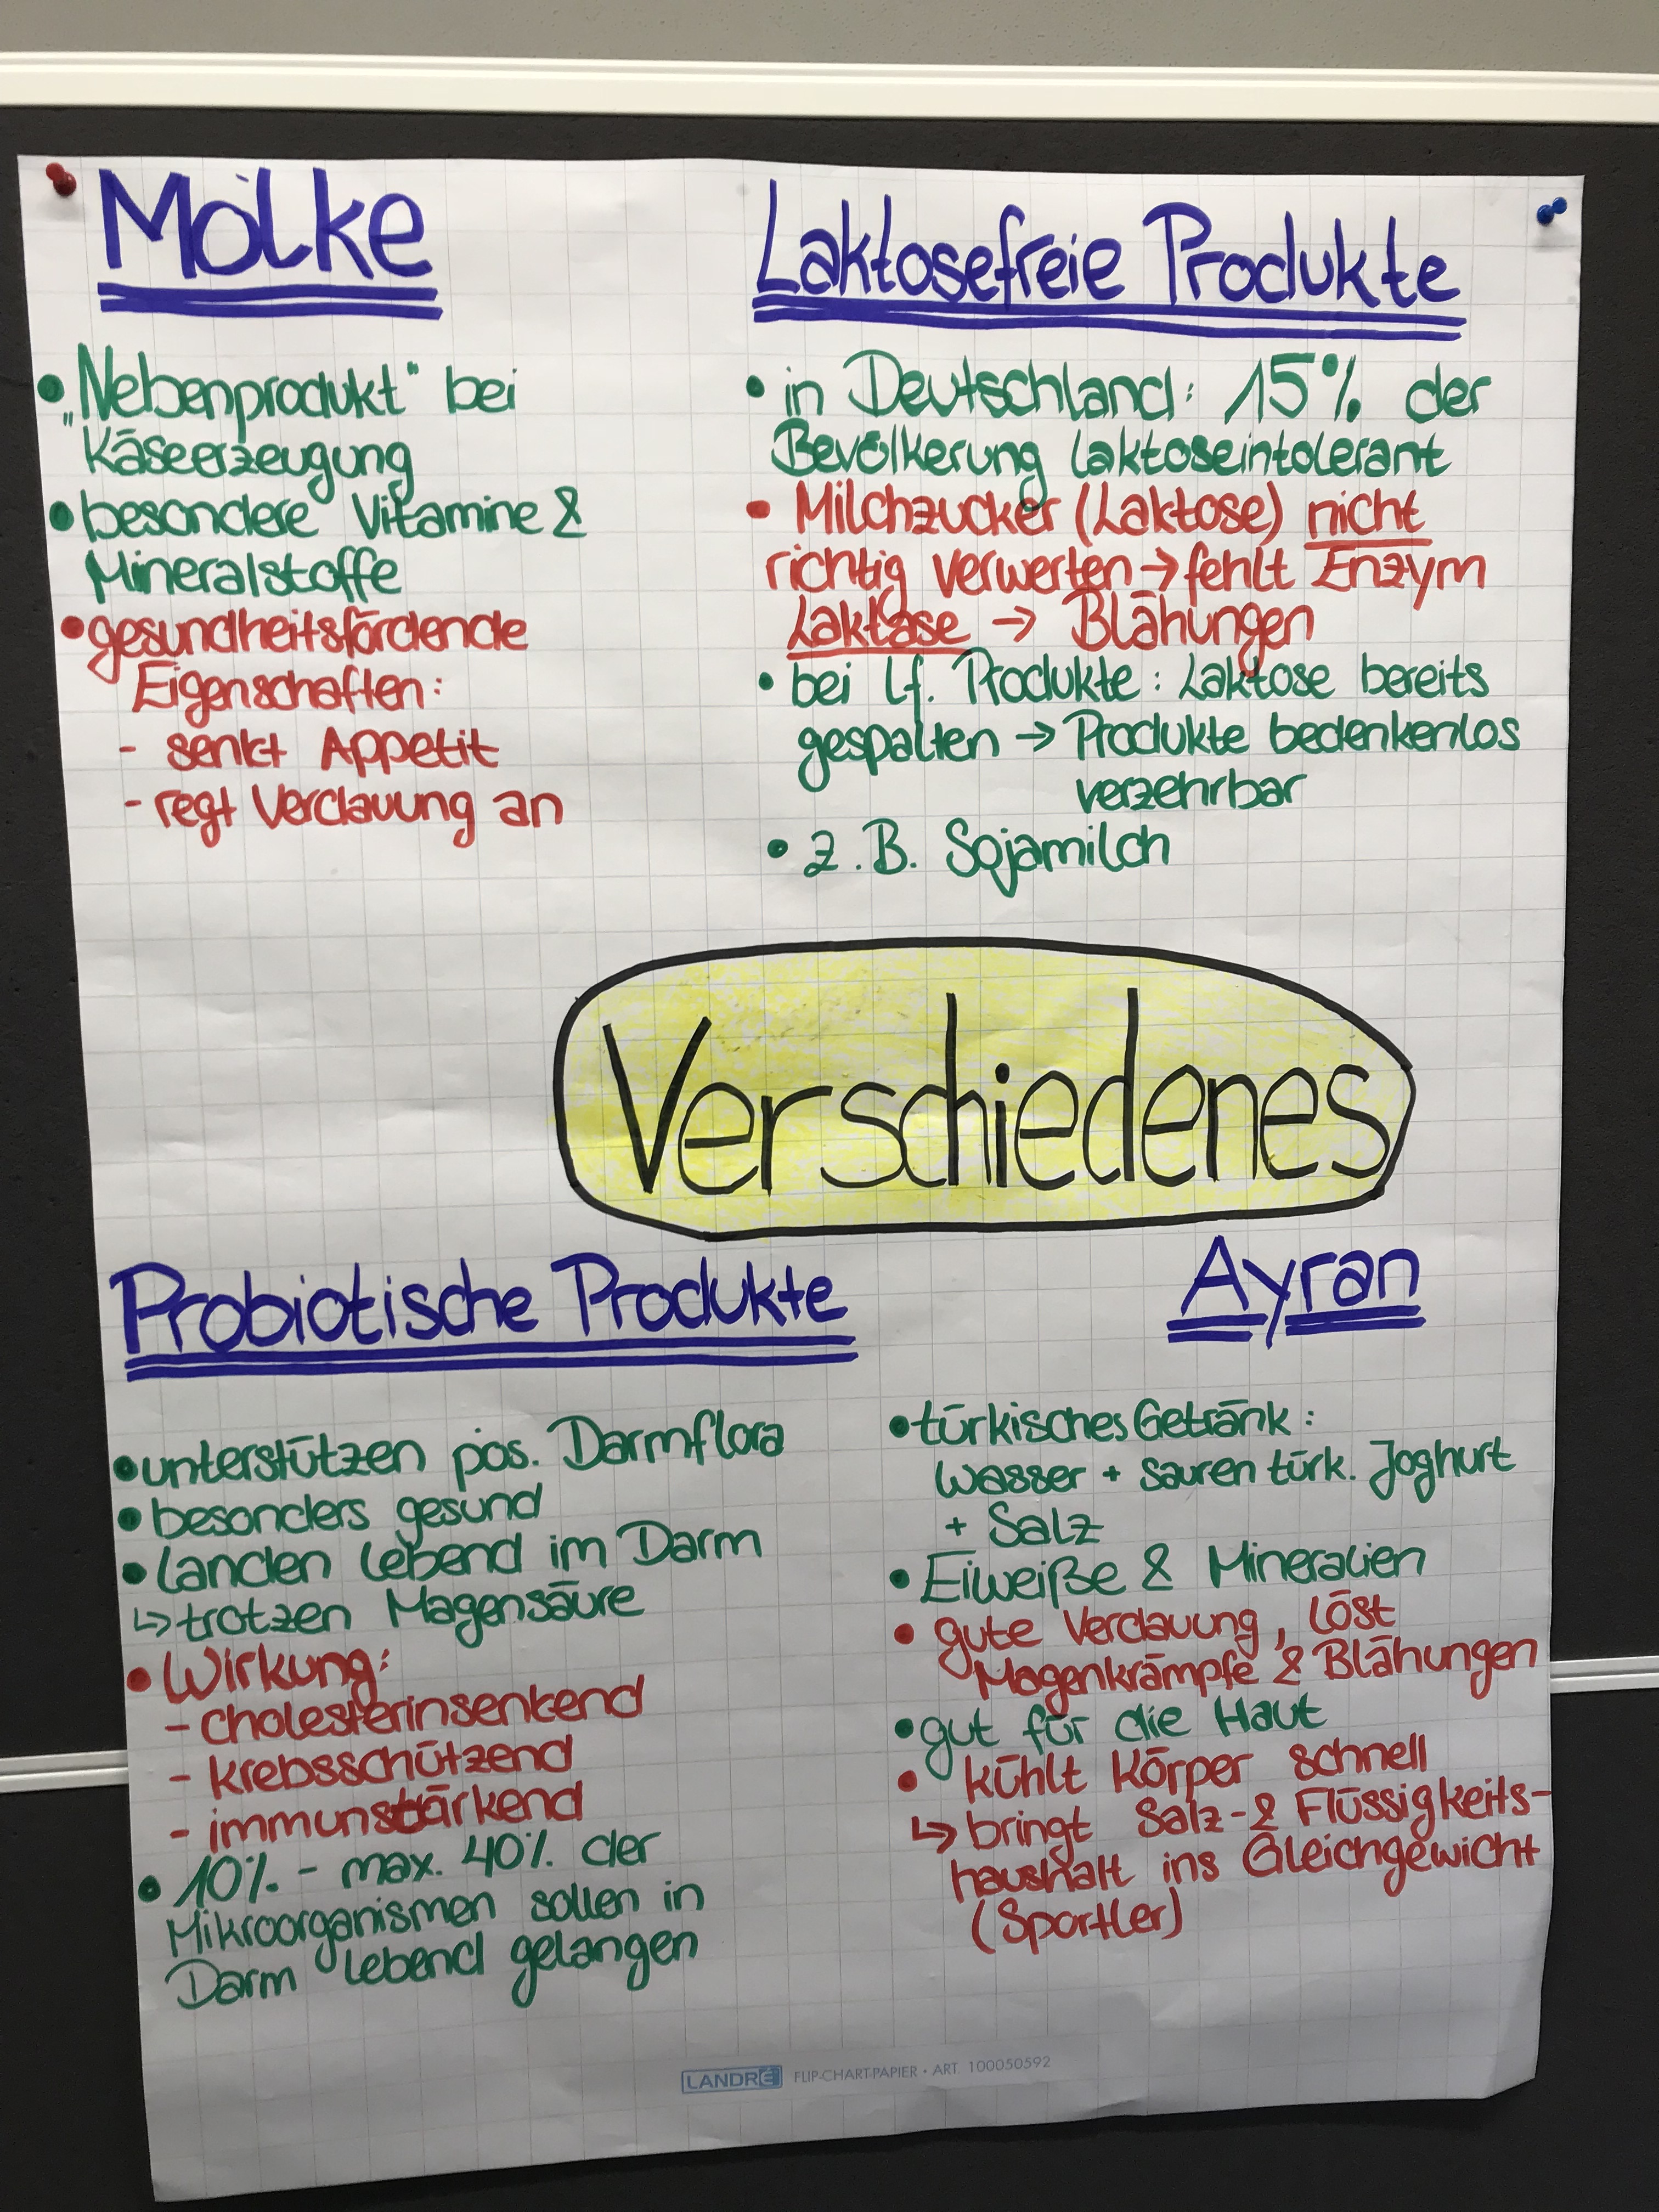 Molke
• „Nebenprodukt" bei
Käseerzeugung
• besondere Vitamine &
Mineralstoffe
• gesundheitsfördende
Eigenschaften:
- senkt Appetit
- regt Verdauung an
Laktosefreie Produkte
• in Deutschland: 15% der
Bevölkerung laktoseintolerant
• Milchzucker (Laktose) nicht
richtig verwerten → fehlt Enzym
Laktase → Blähungen
• bei Lf. Produkte: Laktose bereits
gespalten → Produkte bedenkenlos
verzehrbar
• z.B. Sojamilch
Verschiedenes
Probiotische Produkte
• unterstützen pos. Darmflora
• besonders gesund
• landen lebend im Darm
↳ trotzen Magensäure
• Wirkung:
- cholesterinsenkend
- krebsschützend
- immunstärkend
• 10% - max. 40% der
Mikroorganismen sollen in
Darm lebend gelangen
Ayran
• türkisches Getränk:
Wasser + sauren türk. Joghurt
+ Salz
• Eiweiße & Mineralien
• gute Verdauung, löst
Magenkrämpfe & Blähungen
• gut für die Haut
• kühlt Körper schnell
↳ bringt Salz- & Flüssigkeits-
haushalt ins Gleichgewicht
(Sportler)
LANDRÉ FLIP-CHART-PAPIER • ART. 100050592